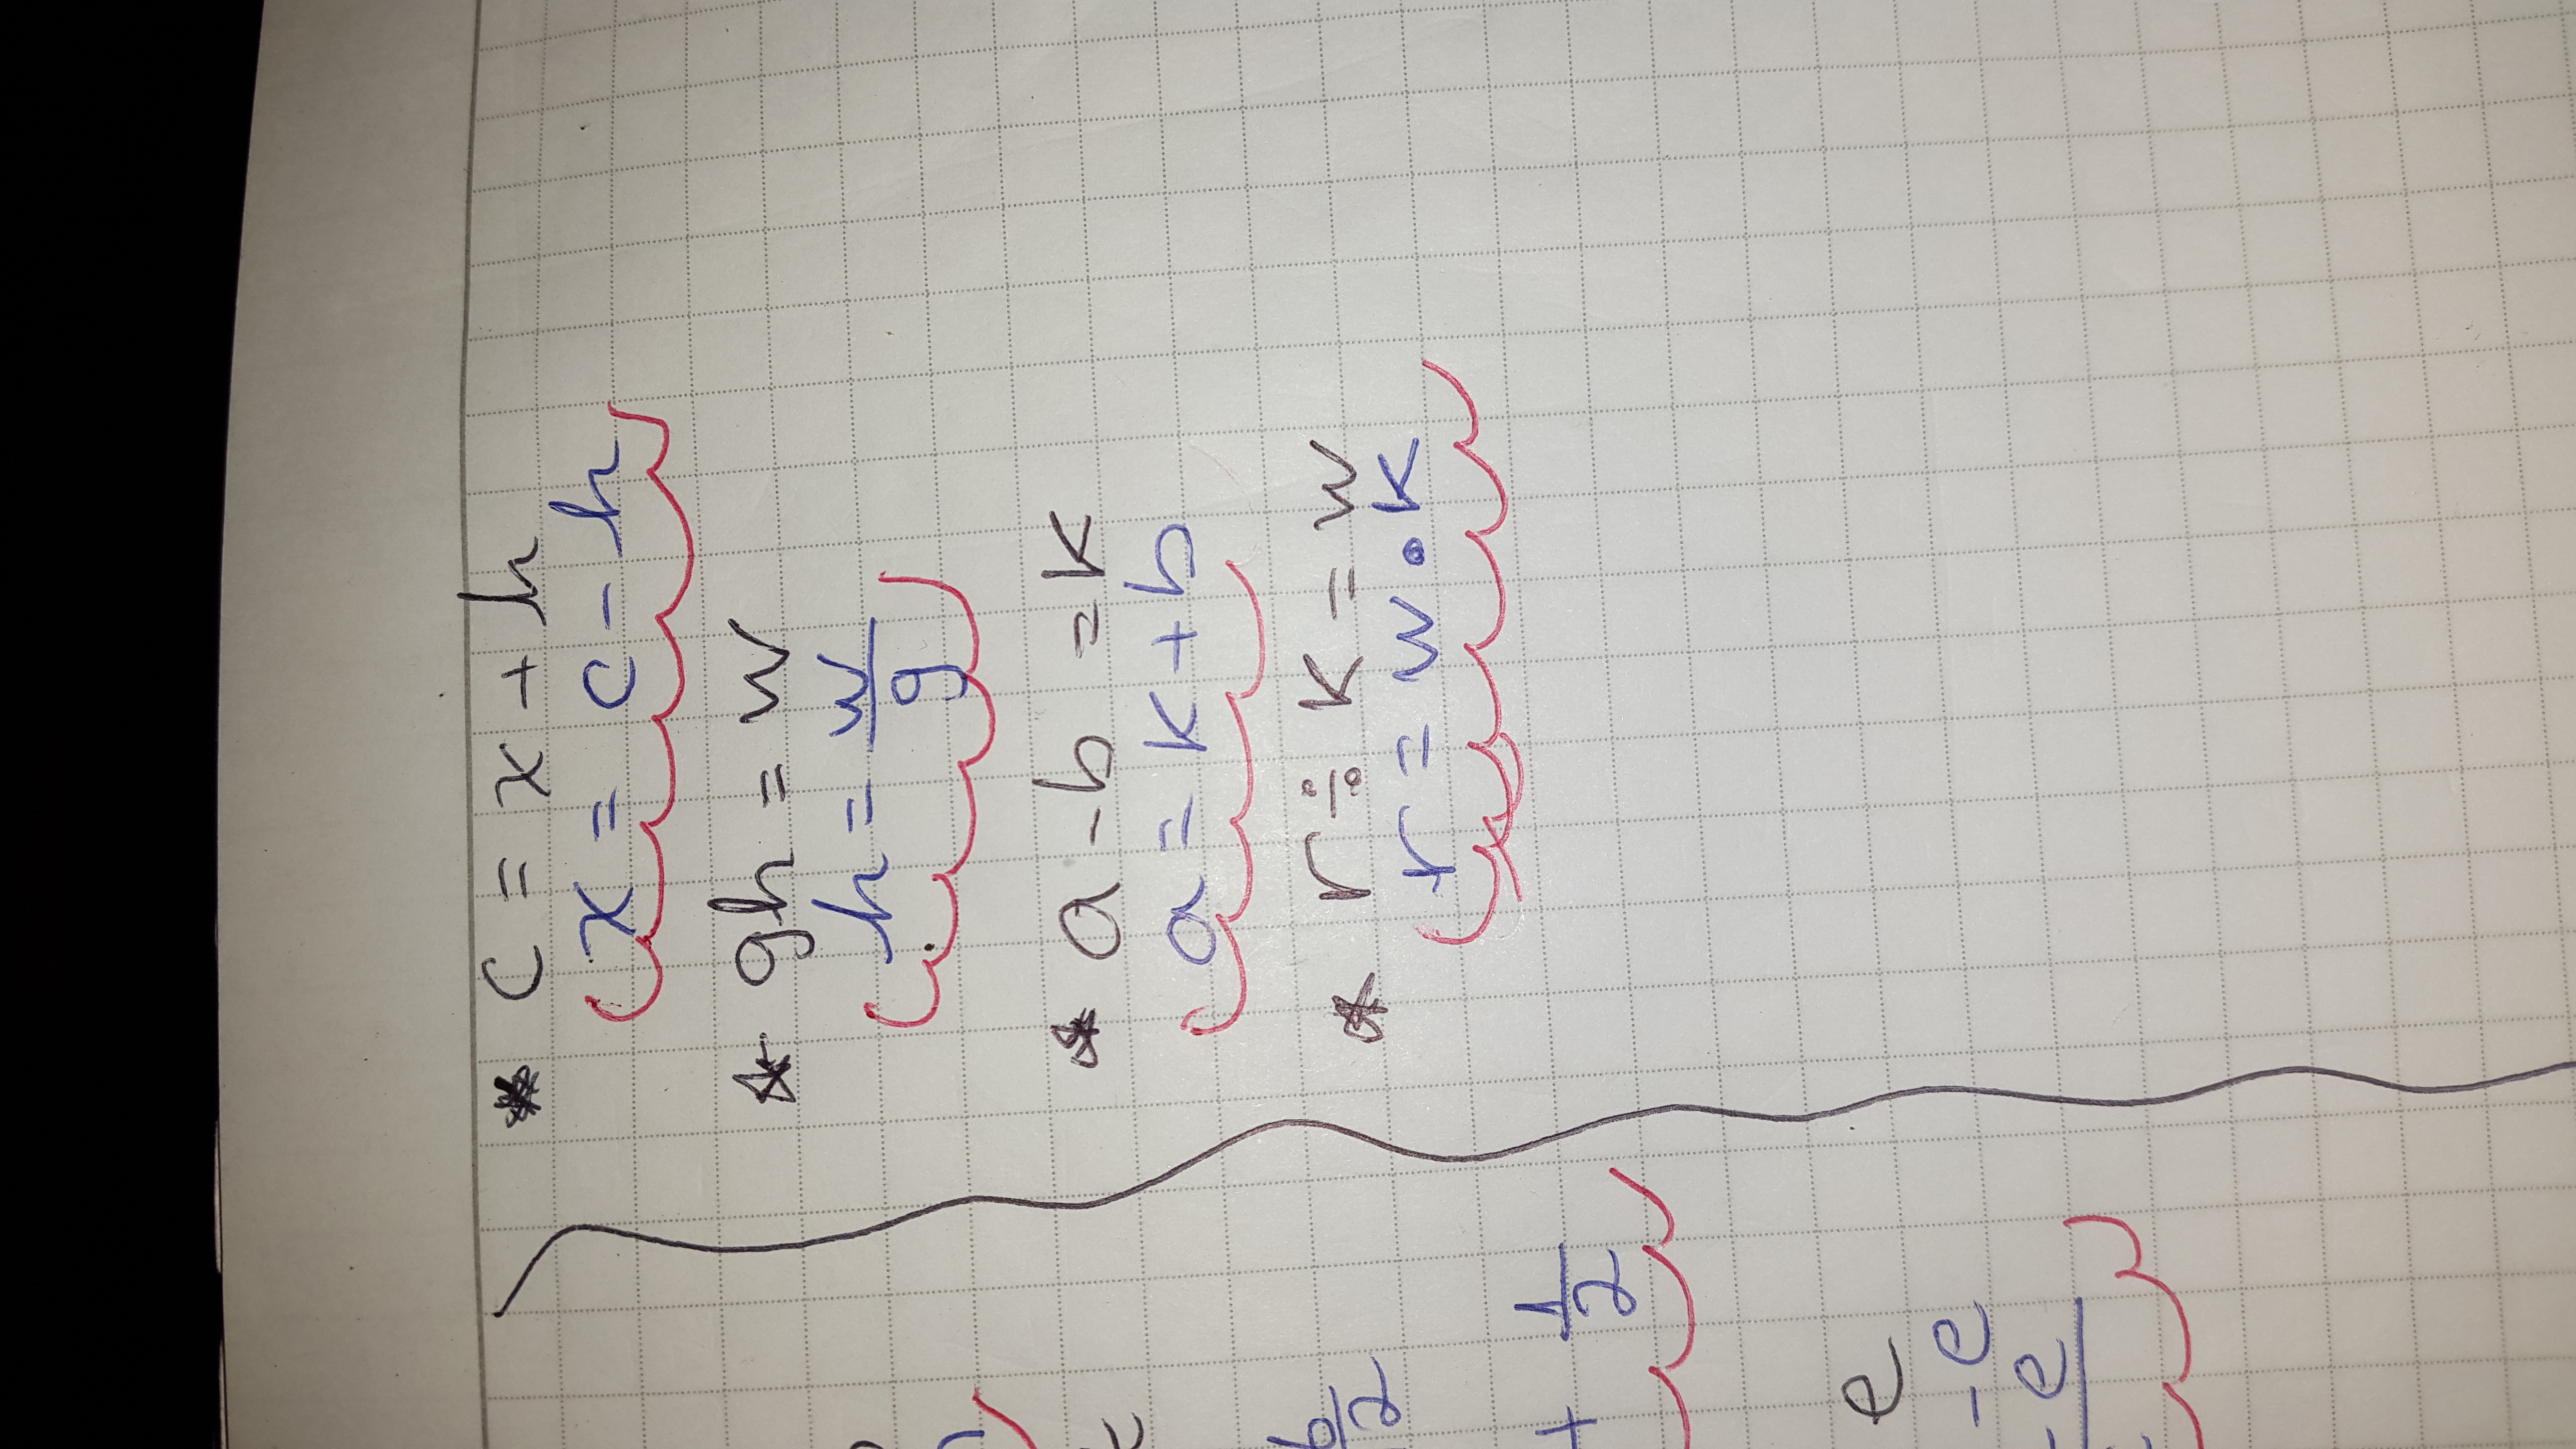 * c = x + h
x = c - h
* gh = w
h = w/g
* a - b = k
a = k + b
* r ÷ k = w
r = w • k
b/2
+ 1/2
e
- e
- e